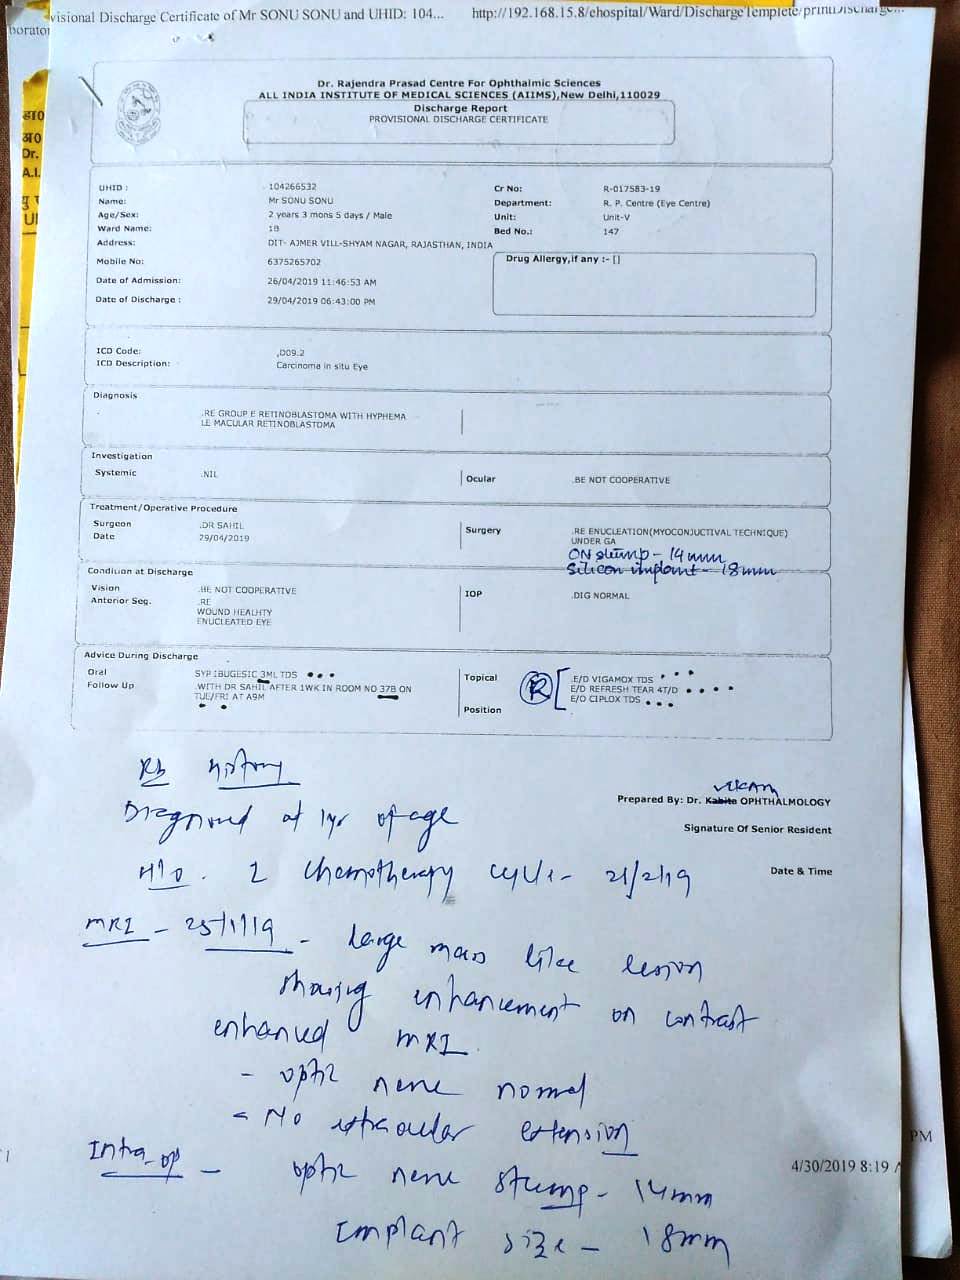 visional Discharge Certificate of Mr SONU SONU and UHID: 104... http://192.168.15.8/ehospital/Ward/DischargeTemplete/printDischarge...
Dr. Rajendra Prasad Centre For Ophthalmic Sciences
ALL INDIA INSTITUTE OF MEDICAL SCIENCES (AIIMS),New Delhi,110029
Discharge Report
PROVISIONAL DISCHARGE CERTIFICATE
UHID : 104266532 Cr No: R-017583-19
Name: Mr SONU SONU Department: R. P. Centre (Eye Centre)
Age/Sex: 2 years 3 mons 5 days / Male Unit: Unit-V
Ward Name: 1B Bed No.: 147
Address: DIT- AJMER VILL-SHYAM NAGAR, RAJASTHAN, INDIA
Mobile No: 6375265702 Drug Allergy,if any :- []
Date of Admission: 26/04/2019 11:46:53 AM
Date of Discharge : 29/04/2019 06:43:00 PM
ICD Code: ,D09.2
ICD Description: Carcinoma in situ Eye
Diagnosis
.RE GROUP E RETINOBLASTOMA WITH HYPHEMA
LE MACULAR RETINOBLASTOMA
Investigation
Systemic .NIL Ocular .BE NOT COOPERATIVE
Treatment/Operative Procedure
Surgeon .DR SAHIL Surgery .RE ENUCLEATION(MYOCONJUCTIVAL TECHNIQUE)
Date 29/04/2019 UNDER GA
ON stump - 14mm
Silicon implant - 18mm
Condition at Discharge
Vision .BE NOT COOPERATIVE IOP .DIG NORMAL
Anterior Seg. .RE
WOUND HEALHTY
ENUCLEATED EYE
Advice During Discharge
Oral SYP IBUGESIC 3ML TDS Topical R .E/D VIGAMOX TDS
Follow Up .WITH DR SAHIL AFTER 1WK IN ROOM NO 37B ON E/D REFRESH TEAR 4T/D
TUE/FRI AT A9M E/O CIPLOX TDS
Position
Rb History
Prepared By: Dr. Kabita OPHTHALMOLOGY
Diagnosed at 1yr of age
Signature Of Senior Resident
H/o. 2 chemotherapy cycle - 21/2/19
Date & Time
MRI - 25/1/19 - Large mass like lesion
showing enhancement on contrast
enhanced MRI.
- optic nerve normal
- No extraocular extension
PM
4/30/2019 8:19
Intra-op - optic nerve stump - 14mm
Implant size - 18mm